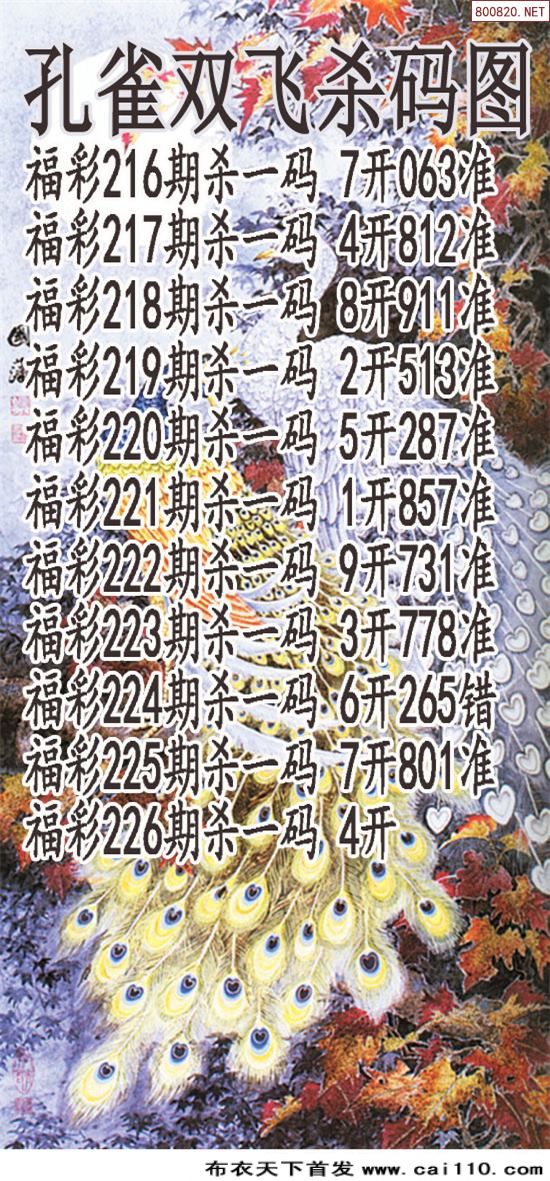 800820.NET
孔雀双飞杀码图
福彩216期杀一码 7开063准
福彩217期杀一码 4开812准
福彩218期杀一码 8开911准
福彩219期杀一码 2开513准
福彩220期杀一码 5开287准
福彩221期杀一码 1开857准
福彩222期杀一码 9开731准
福彩223期杀一码 3开778准
福彩224期杀一码 6开265错
福彩225期杀一码 7开801准
福彩226期杀一码 4开
布衣天下首发 www.cai110.com